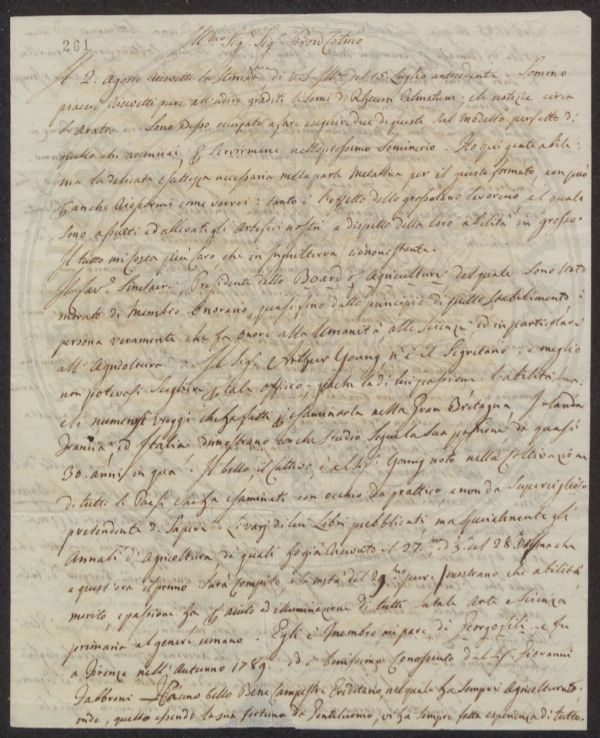 261
Sig.r Sig.r Pron Colmo
Il 2. Agosto ricevetti la stima di V.S. Ill.ma del 15. Luglio antecedente. Sommo
piacere ricevetti pure all'udire graditi li Semi di Rheum Palmatum e le notizie circa
le Aratro. Sono adesso occupato a fare eseguire due di questi sul modello perfetto di
quello che accennai, per servirmene nella prossimo Seminerio. Ho qui gente abile:
ma la delicata esattezza necessaria nella parte Metallica per il giusto formato, non può
anche riescirmi come vorrei: tanto è l'effetto dello grossolano lavorono al quale
sono assueti ed allevati gli Artefici nostri, a dispetto della loro abilità in grosso.
Il tutto mi costa più caro che in Inghilterra ciononostante.
Il Cav.r Sinclair, Presidente dello Board of Agriculture del quale sono stato
onorato di Membro Onorario, quasi fino dallo principio di quello stabilimento è
persona veramente che fa onore alla Umanità, alle Scienze, ed in particolare
all'Agricoltura. Il Sig.r Arthur Young n'è il Segretario; e meglio
non potevasi scegliere per tale officio, poichè la di lui passione, l'abilità sua,
e li numerosi viaggi che ha fatti per esaminarla nella Gran Bretagna, Irlanda
Francia, ed Italia dimostrano con che studio segue la sua passione da quasi
30. anni in qua. Il bello, il cattivo, è al Sig.r Young noto nella coltivazione
di tutti li Paesi che ha esaminati con occhio da prattico, e non da superciglioso
pretendente di sapere. Li varj di lui Libri pubblicati ma specialmente gli
Annali d'Agricoltura de quali ho già ricevuto il 27.mo del 28.
a quest'ora il primo sarà compito e la metà del 29.mo pure / mostrano che abilità
merito e passione ha per aiuto ed illuminazione di tutti sulale Arte e Scienza
primaria al genere umano. Egli è Membro mi pare di Georgofili e fu
a Firenze nell'Autunno 1789. ed è benissimo conosciuto dal Sig.r Giovanni
Fabbroni. Ha uno bello Bene Campestre Ereditario, nel quale ha sempre Agricolturato.
onde, questo essendo la sua fortuna da Gentiluomo, vi ha sempre fatta esperienza di tutto.